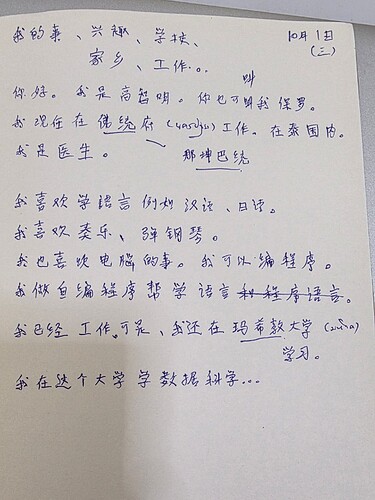 我的事、兴趣、学校、 10月1日
家乡、工作。。 (三)
叫
你好。我是高智明。你也可以叫我保罗。
我现在在佛统府 (yasothon) 工作。在泰国内。
我是医生。 那坤巴统
我喜欢学语言例如汉语、日语。
我喜欢柔乐、弹钢琴。
我也喜欢电脑的事。我可以编程序。
我做自编程序帮学语言和程序语言。
我已经工作。可是、我还在玛希敦大学
学习。
我在这个大学学数据科学...